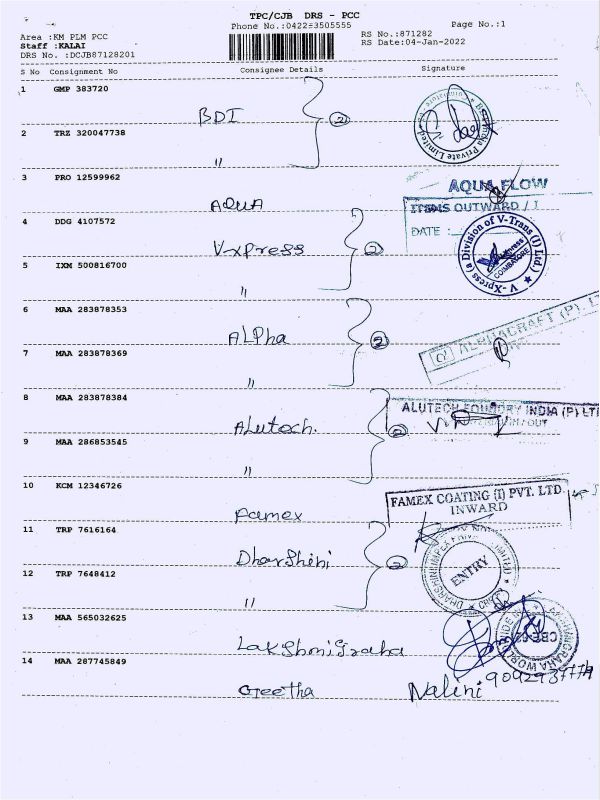 TPC/CJB DRS - PCC
Phone No.:0422-3505555
Page No.:1
Area :KM PLM PCC
Staff :KALAI
DRS No. :DCJB87128201
RS No.:871282
RS Date:04-Jan-2022
S No Consignment No Consignee Details Signature
1 GMP 383720
BDI 2
India Private Limited
2 TRZ 320047738
"
3 PRO 12599962
AQUA
AQUA FLOW
ITEMS OUTWARD / I
DATE :
4 DDG 4107572
Vxpress 2
V - Xpress (a Division of V-Trans (I) Ltd.)
COIMBATORE
5 IXM 500816700
"
6 MAA 283878353
ALPha 2
ALPHACRAFT (P). LT
7 MAA 283878369
"
8 MAA 283878384
ALutech. 2
ALUTECH FOUNDRY INDIA (P) LTD
9 MAA 286853545
"
10 KCM 12346726
Famex
FAMEX COATING (I) PVT. LTD.
INWARD
11 TRP 7616164
Dharshini 2
ENTRY
12 TRP 7648412
"
13 MAA 565032625
LakShmigraha
14 MAA 287745849
Geetha
Nalini